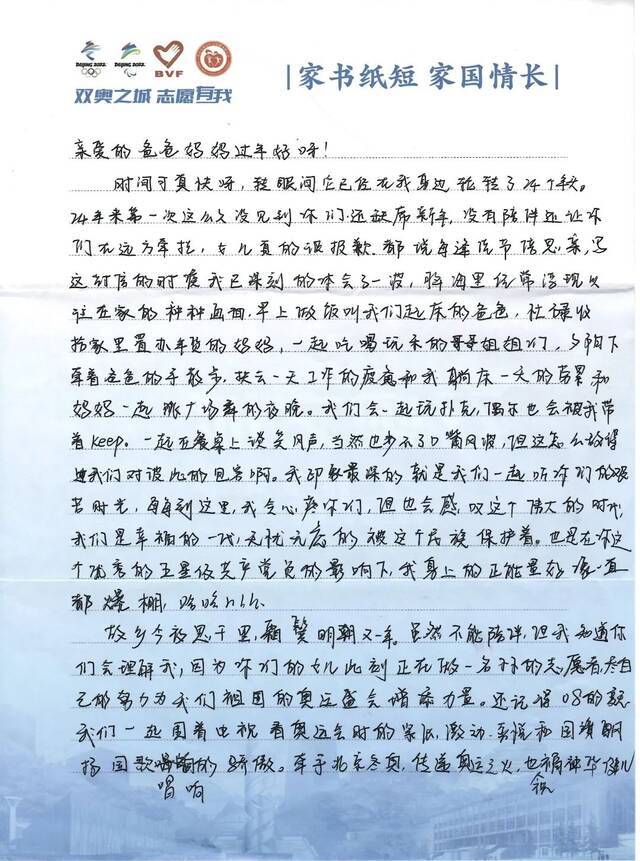 BEIJING 2022
BEIJING 2022
BVF
双奥之城 志愿有我
|家书纸短 家国情长|
亲爱的爸爸妈妈过年好呀！
时间可真快呀，转眼间它已经在我身边轮转了24个年头。
24年来第一次这么久没见到你们还缺席新年，没有陪伴还让你
们在远方牵挂，女儿真的很抱歉。都说每逢佳节倍思亲，写
这封信的时候我已深刻的体会了一波，脑海里经常浮现
往在家的种种画面，早上做饭叫我们起床的爸爸，忙碌收
拾家里置办年货的妈妈，一起吃喝玩乐的哥哥姐姐们，夕阳下
牵着爸爸的手散步，扶去一天工作的疲惫和我躺床一天的苦累和
妈妈一起跳广场舞的夜晚。我们会一起玩扑克，偶尔也会被我带
着Keep。一起在餐桌上谈笑风声，当然也少不了口嘴风波，但这怎么敌得
过我们对彼此的包容啊。我印象最深的就是我们一起听你们的艰
苦时光，每每到这里，我会心疼你们，但也会感叹这个伟大的时代
我们是幸福的一代，无忧无虑的被这个民族保护着。也是在你这
个优秀的五星级共产党员的影响下，我身上的正能量好像一直
都爆棚，哈哈hhh.
故乡今夜思千里，霜鬓明朝又一年。虽然不能陪伴，但我知道你
们会理解我，因为你们的女儿此刻正在做一名 的志愿者，尽自
己的努力为我们祖国的奥运盛会增添力量。还记得08的夏
我们一起围着电视看奥运会时的紧张、激动、喜悦和国旗飘
扬国歌唱响的骄傲。牵手北京冬奥，传递奥运之火，也祝福中华健儿